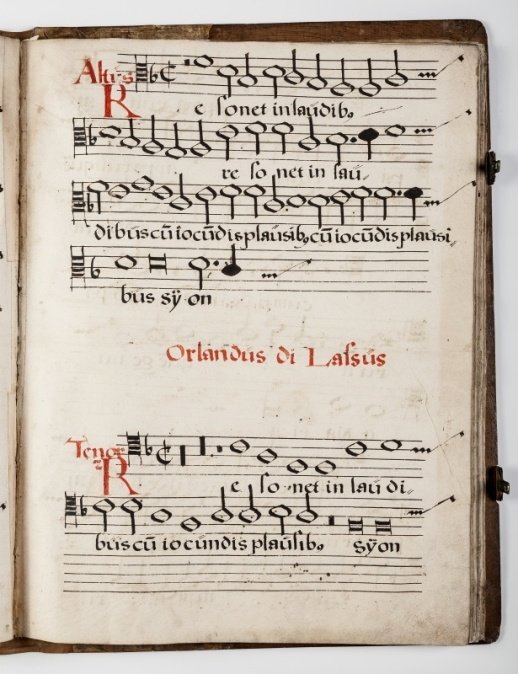 Altus
Resonet in laudibꝫ
resonet in lau-
dibus cū iocūdis plausibꝫ cū iocūdis plausi-
bus sÿon
Orlandus di Lassus
Tenor
Resonet in lau di-
bus cū iocundis plausibꝫ sÿon